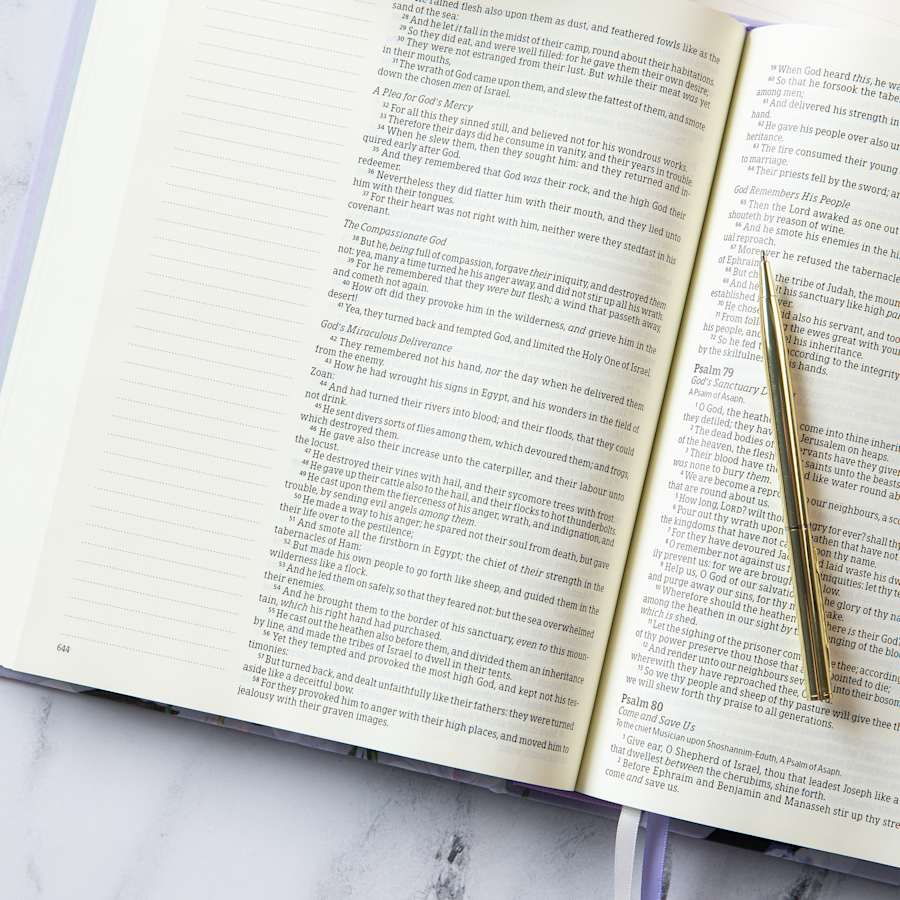 he rained flesh also upon them as dust, and feathered fowls like as the
sand of the sea:
28 And he let it fall in the midst of their camp, round about their habitations.
29 So they did eat, and were well filled: for he gave them their own desire;
30 They were not estranged from their lust. But while their meat was yet
in their mouths,
31 The wrath of God came upon them, and slew the fattest of them, and smote
down the chosen men of Israel.
A Plea for God's Mercy
32 For all this they sinned still, and believed not for his wondrous works.
33 Therefore their days did he consume in vanity, and their years in trouble.
34 When he slew them, then they sought him: and they returned and in-
quired early after God.
35 And they remembered that God was their rock, and the high God their
redeemer.
36 Nevertheless they did flatter him with their mouth, and they lied unto
him with their tongues.
37 For their heart was not right with him, neither were they stedfast in his
covenant.
The Compassionate God
38 But he, being full of compassion, forgave their iniquity, and destroyed them
not: yea, many a time turned he his anger away, and did not stir up all his wrath.
39 For he remembered that they were but flesh; a wind that passeth away,
and cometh not again.
40 How oft did they provoke him in the wilderness, and grieve him in the
desert!
41 Yea, they turned back and tempted God, and limited the Holy One of Israel.
God's Miraculous Deliverance
42 They remembered not his hand, nor the day when he delivered them
from the enemy.
43 How he had wrought his signs in Egypt, and his wonders in the field of
Zoan:
44 And had turned their rivers into blood; and their floods, that they could
not drink.
45 He sent divers sorts of flies among them, which devoured them; and frogs,
which destroyed them.
46 He gave also their increase unto the caterpiller, and their labour unto
the locust.
47 He destroyed their vines with hail, and their sycomore trees with frost.
48 He gave up their cattle also to the hail, and their flocks to hot thunderbolts.
49 He cast upon them the fierceness of his anger, wrath, and indignation, and
trouble, by sending evil angels among them.
50 He made a way to his anger; he spared not their soul from death, but gave
their life over to the pestilence;
51 And smote all the firstborn in Egypt; the chief of their strength in the
tabernacles of Ham:
52 But made his own people to go forth like sheep, and guided them in the
wilderness like a flock.
53 And he led them on safely, so that they feared not: but the sea overwhelmed
their enemies.
54 And he brought them to the border of his sanctuary, even to this moun-
tain, which his right hand had purchased.
55 He cast out the heathen also before them, and divided them an inheritance
by line, and made the tribes of Israel to dwell in their tents.
56 Yet they tempted and provoked the most high God, and kept not his tes-
timonies:
57 But turned back, and dealt unfaithfully like their fathers: they were turned
aside like a deceitful bow.
58 For they provoked him to anger with their high places, and moved him to
jealousy with their graven images.
644
59 When God heard this, he wa
60 So that he forsook the tabe
among men;
61 And delivered his strength in
hand.
62 He gave his people over also un
heritance.
63 The fire consumed their young
to marriage.
64 Their priests fell by the sword; an
God Remembers His People
65 Then the Lord awaked as one out
shouteth by reason of wine.
66 And he smote his enemies in the hi
ual reproach.
67 Moreover he refused the tabernacle
of Ephraim
68 But ch the tribe of Judah, the moun
69 And he his sanctuary like high pal
established
70 He chose also his servant, and too
71 From foll the ewes great with your
his people, and his inheritance.
72 So he fed according to the integrity
by the skilfulness his hands.
Psalm 79
God's Sanctuary D
A Psalm of Asaph.
1 O God, the heath come into thine inheri
they defiled; they hav Jerusalem on heaps.
2 The dead bodies of ervants have they given
of the heaven, the flesh saints unto the beasts
3 Their blood have the d like water round ab
was none to bury them.
4 We are become a repro our neighbours, a sco
that are round about us.
5 How long, LORD? will tho ngry for ever? shall thy
6 Pour out thy wrath upon eathen that have not
the kingdoms that have not c pon thy name.
7 For they have devoured Ja laid waste his dw
8 O remember not against us iniquities: let thy te
ily prevent us: for we are broug low.
9 Help us, O God of our salvati he glory of thy na
and purge away our sins, for thy n ake.
10 Wherefore should the heathen here is their God?
among the heathen in our sight by nging of the bloo
which is shed.
11 Let the sighing of the prisoner come thee; according
of thy power preserve thou those that ppointed to die;
12 And render unto our neighbours seven into their bosom
wherewith they have reproached thee, O
13 So we thy people and sheep of thy pasture will give thee th
we will shew forth thy praise to all generations.
Psalm 80
Come and Save Us
To the chief Musician upon Shoshannim-Eduth, A Psalm of Asaph.
1 Give ear, O Shepherd of Israel, thou that leadest Joseph like a
that dwellest between the cherubims, shine forth.
2 Before Ephraim and Benjamin and Manasseh stir up thy stre
come and save us.